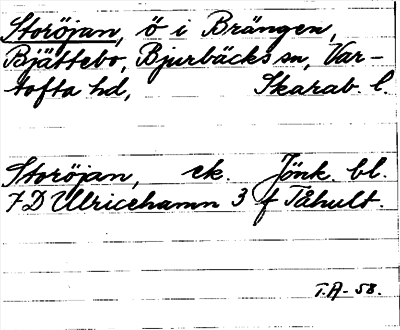 Storöjan, ö i Brängen,
Bjättebo, Bjurbäcks sn, Var-
tofta hd, Skarab. l.
Storöjan, ek. Jönk. bl.
7D Ulricehamn 3 f Tåhult.
T.A- 58.